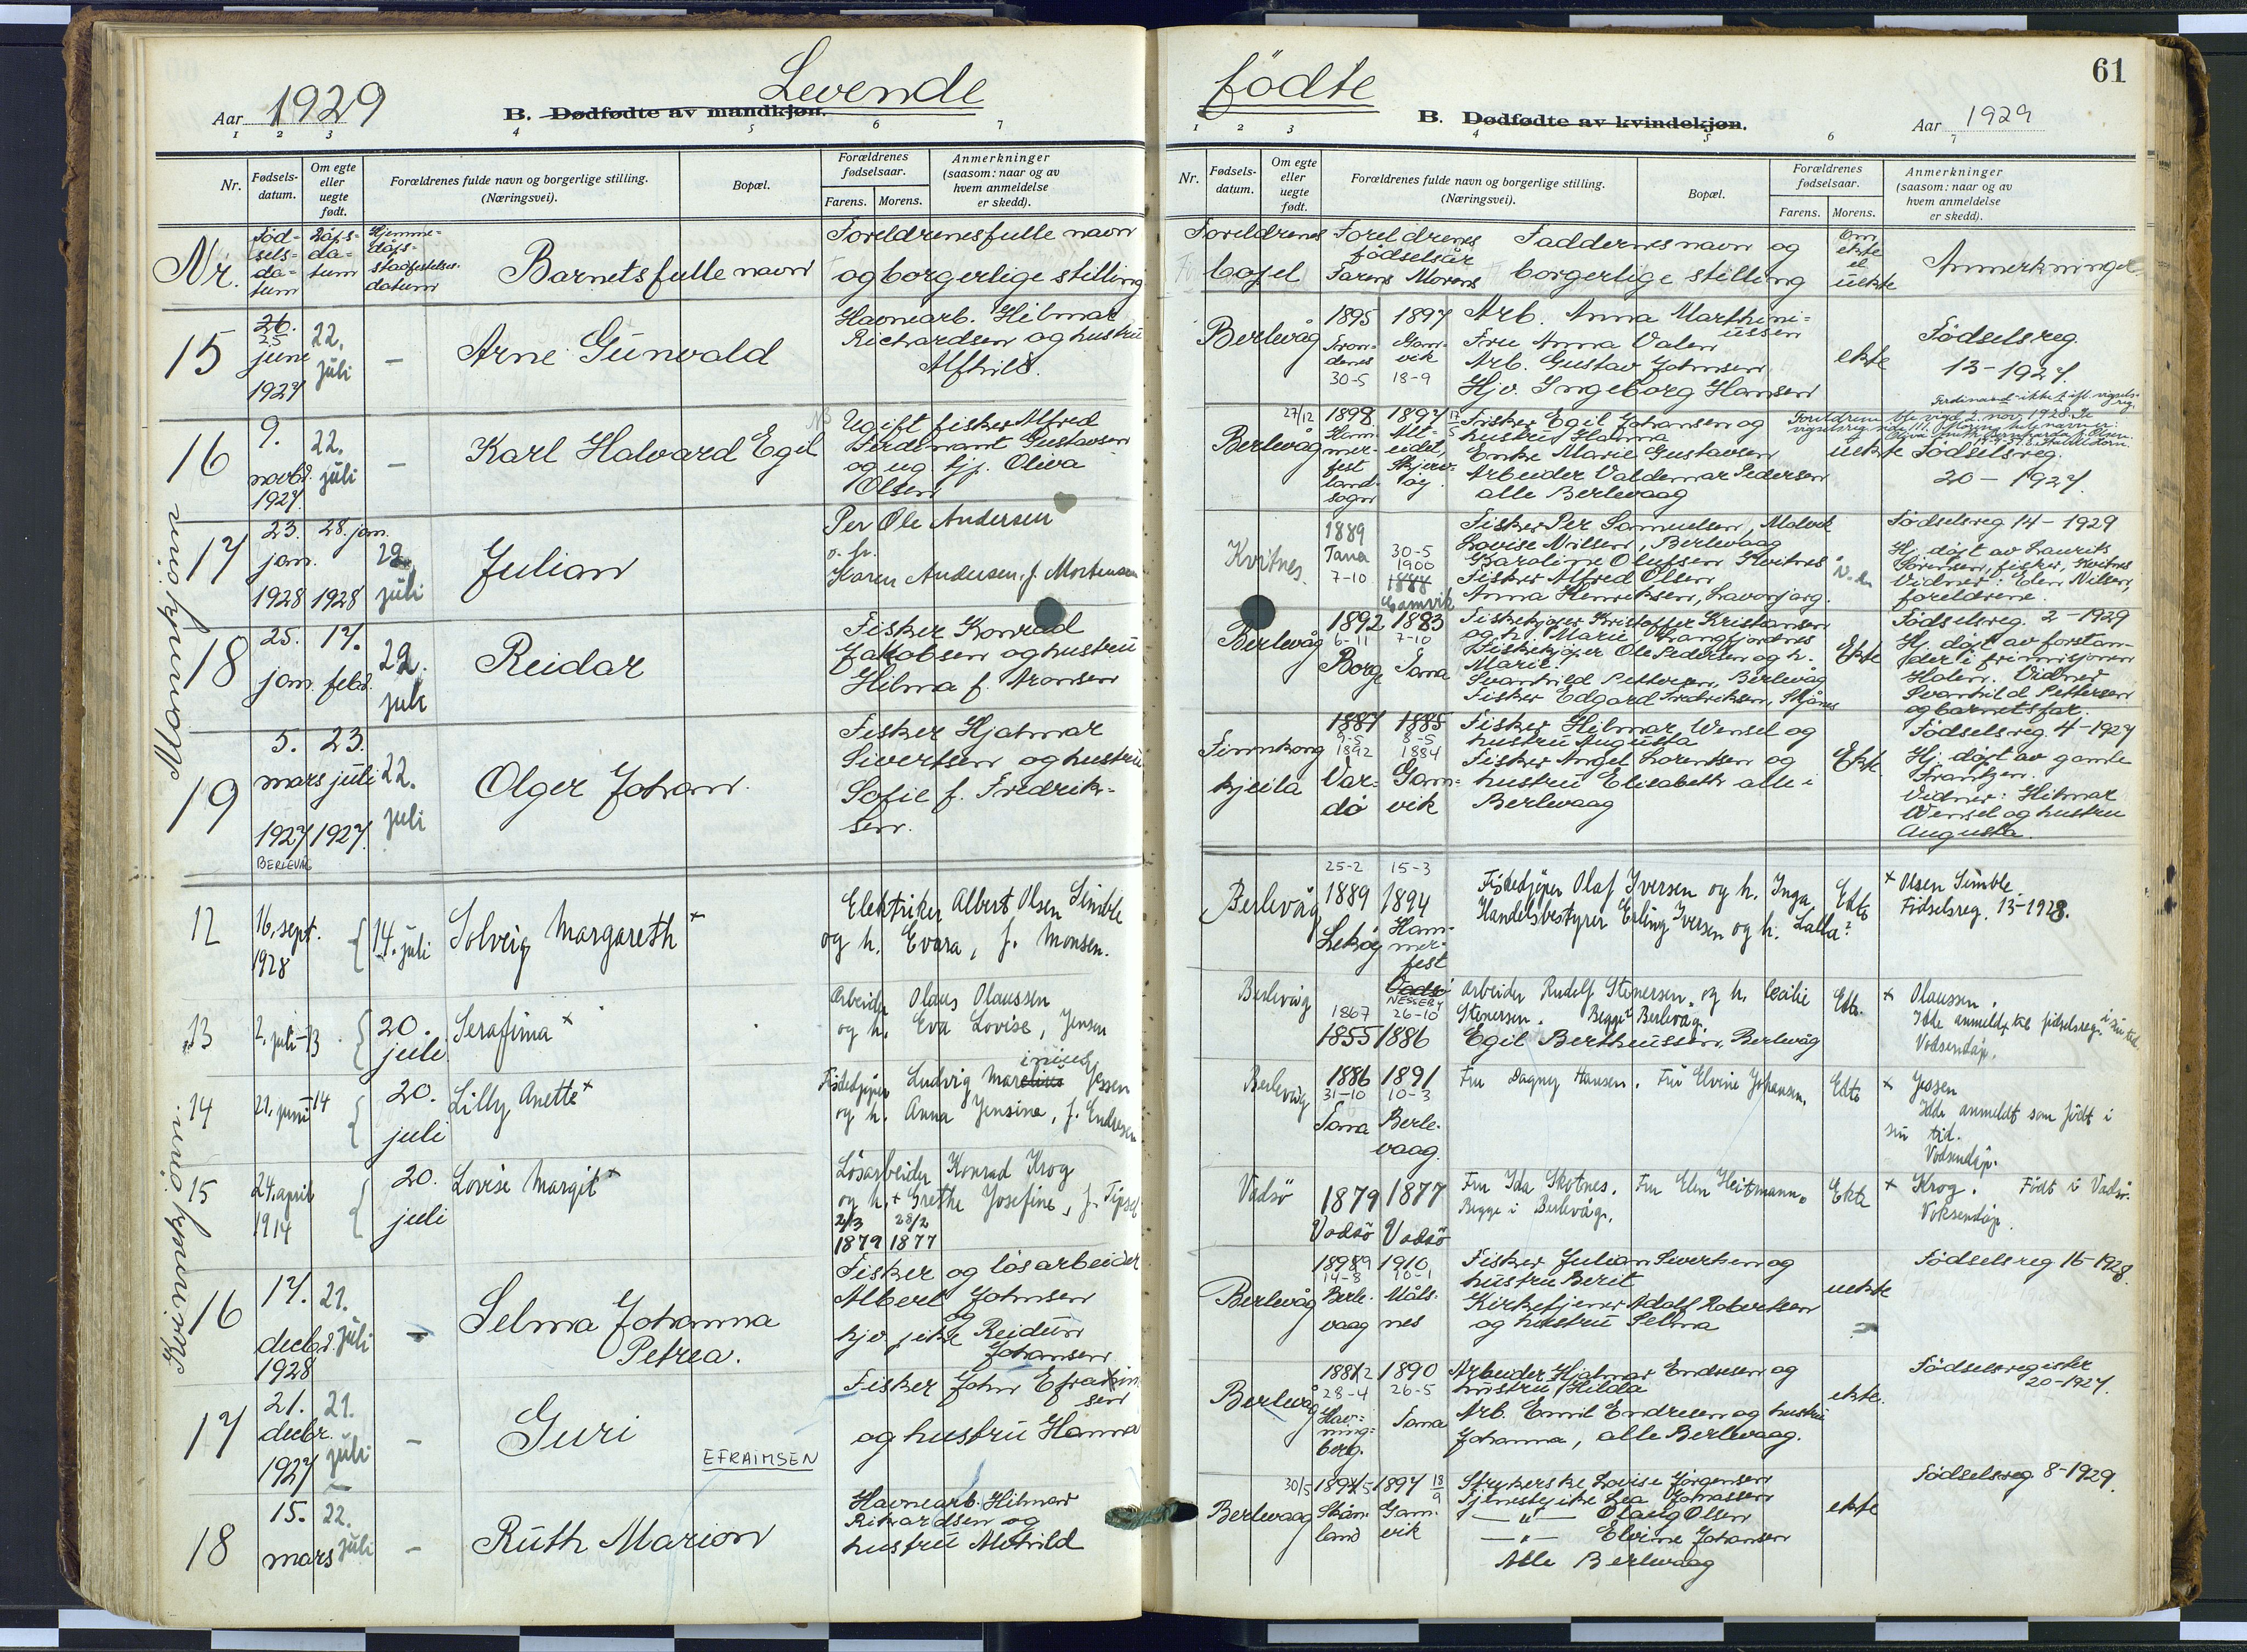 Levende
Aar 1929
B. Dødfødte av mandkjøn.
1 2 3 4 5 6 7
Nr.
Fødsels-
datum.
Om egte
eller
uegte
født.
Forældrenes fulde navn og borgerlige stilling.
(Næringsvei).
Bopæl.
Forældrenes
fødselsaar.
Farens. Morens.
Anmerkninger
(saasom: naar og av
hvem anmeldelse
er skedd).
Nr.
Föd-
sels-
da-
tum
Dåps-
da-
tum
Hjemme-
dåps-
stadfestelses-
datum
Barnets fulle navn
Foreldrenes fulle navn
og borgerlige stilling
Mannkjönn
15
26.
25
juni
1927
22.
juli
–
Arne Günvald
Havnearb. Hilmar
Richardsen og hustru
Alfhild.
16
9.
novbr.
1927
22.
juli
–
Karl Halvard Egil
NB
Ugift fisker Alfred
Ferdinant Gustavsen
og ug. tj. p. Oliva
Olsen
17
23.
jan.
1928
28. jan.
1928
22.
juli
Julian
Per Ole Andersen
o. h.
Karen Andersen, f. Mortensen
18
25.
jan.
17.
febr.
22.
juli
Reidar
Fisker Konrad
Jakobsen og hustru
Hilma f. Aronsen
19
5.
mars
1927
23.
juli
1927.
22.
juli
Olger Johan.
Fisker Hjalmar
Sivertsen og hustru
Sofie f. Fredrik-
sen.
BERLEVÅG
Kvinnekjönn
12
16. sept.
1928
14. juli
Solveig Margareth +
Elektriker Albert Olsen Simble
og h. Evara, f. Monsen.
13
2. juli -13
20.
juli
Serafina +
Arbeider Olaus Olaussen
og h. Eva Lovise, Jensen
14
21. juni -14
20.
juli
Lilly Anette +
Fiskekjöper Ludvig Marelius inius Jessen
og h. Anna Jensine, f. Endresen
15
24. april
1914
20.
juli
Lovise Margit +
Lösarbeider Konrad Krog
og h. + Grethe Josefine, f.
2/3 28/2
1879 1877
16
17.
decbr.
1928
21.
juli
–
Selma Johanna
Petrea.
Fisker og lösarbeider
Albert Johnsen
og
hjv. pike Reidun
Johansen
17
21.
decbr.
1927
21.
juli
–
Guri
EFRAIMSEN
Fisker John Efraim
sen
og hustru Hanna
18
15.
mars
22.
juli
–
Ruth Marion
Havnearb. Hilmar
Rikardsen og
hustru Alvhild
födte
61
B. Dødfødte av kvindekjøn.
Aar 1929
1 2 3 4 5 6 7
Nr.
Fødsels-
datum.
Om egte
eller
uegte
født.
Forældrenes fulde navn og borgerlige stilling.
(Næringsvei).
Bopæl.
Forældrenes
fødselsaar.
Farens. Morens.
Anmerkninger
(saasom: naar og av
hvem anmeldelse
er skedd).
Foreldrenes
bopel
Foreldrenes
födselsår
Farens Morens
Faddernes navn og
borgerlige stilling
Om
ekte
el.
uekte
Anmerkninger
Berlevåg
1895 1897
Tron-
denes
30-5
Gam-
vik
18-9
Arb. Anna Marthini-
ussen
Fru Anna Valen
Arb. Gustav Johnsen
Hjv. Ingeborg Hansen
ekte
Födselsreg.
13-1927.
Berlevåg
27/12 1898
Ham-
mer-
fest
land-
sogn
1897 17/5
Alt-
eidet,
Skjerv-
öy.
Fisker Egil Johansen og
hustru Hanna
Enke Marie Gustavsen
Arbeider Valdemar Pedersen
alle Berlevaag
uekte
Foreldrene ble vigd 2. nov. 1928. Se
Födselsreg.
20-1927.
Kvitnes.
1889
Tana
7-10
30-5
1900
1888
Gamvik
Fisker Per Samuelsen, Molvik
Lovise Nilsen, Berlevaag
Karoline Olufsen Kvitnes
Fisker Alfred Olsen
Anna Henriksen, Lavonjarg.
Födselsreg. 14-1929
Hj. döpt av Laurits
Sörensen, fisker, Kvitnes
Vidner: Elen Nilsen,
foreldrene.
Berlevåg
1892 1883
6-11 7-10
Borge Tana
Fiskekjöper Kristoffer Kristiansen
og h. Marie Langfjordnes
Fiskekjöper Ole Pedersen og h.
Marie.
Svanhild Pettersen, Berlevåg
Fisker Edgard Fredriksen, Skjånes
Ekte
Födselsreg. 2-1929
Hj. döpt av forstan-
der i frimisjonen
Holen. Vidner
Svanhild Pettersen
og barnets far.
Finnkong-
kjeila
1887 1885
9-5 8-5
1892 1884
Var-
dö
Gam-
vik
Fisker Hilmar Wensel og
hustru Augusta
Fisker Angel Lorentsen og
hustru Elisabeth alle i
Berlevaag
Ekte.
Födselsreg. 4-1927
Hj. döpt av gamle
Frantzen.
Vidner: Hilmar
Wensel og hustru
Augusta.
Berlevåg
25-2 15-3
1889 1894
Ham-
mer-
fest
Fiskekjöper Olaf Iversen og h. Inga.
Handelsbestyrer Erling Iversen og h. Lalla?
Ekte
+ Olsen Simble.
Födselsreg. 13-1928.
Berlevåg
Vadsö
NESSEBY
1867 26-10
1855 1886
Arbeider Rudolf Stenersen og h. Cecilie
Stenersen. Begge Berlevåg.
Egil Bertheussen, Berlevåg
Ekte.
+ Olaussen.
Ikke anmeldt til födselsreg. i sin tid.
Voksendåp.
Berlevåg
1886 1891
31-10 10-3
Tana Berle-
vaag.
Fru Dagny Hansen. Fru Elvine Johansen.
Ekte
+ Jessen
Ikke anmeldt som födt i
sin tid.
Voksendåp.
Vadsö
1879 1877
Vadsö Vadsö
Fru Ida Skotnes. Fru Elen Heitmann.
Begge i Berlevåg.
Ekte
+ Krog. Födt i Vadsö.
Voksendåp.
Berlevåg
18989 1910
14-8 10-1
Berle-
vaag
Måls-
nes
Fisker Julian Sivertsen og
hustru Berit
Kirketjener Adolf Robertsen
og hustru Selma
uekte
Födselsreg 16-1928.
Berlevåg
18812 1890
28-4 26-5
Hav-
ning-
berg.
Tana
Arbeider Hjalmar Endresen og
hustru Hilda
Arb. Emil Endresen og hustru
Johanna, alle Berlevaag.
ekte.
Födselsregister
20-1927.
Berlevaag
30/5 1895 1897 18/9
Skån-
land
Gam-
vik
Strykerske Lovise Jörgensen
Tjenestepike Lea Johnassen
—"— Olaug Olsen
—"— Elvine Johansen
Alle Berlevaag
ekte
Födselsreg 8-1929.